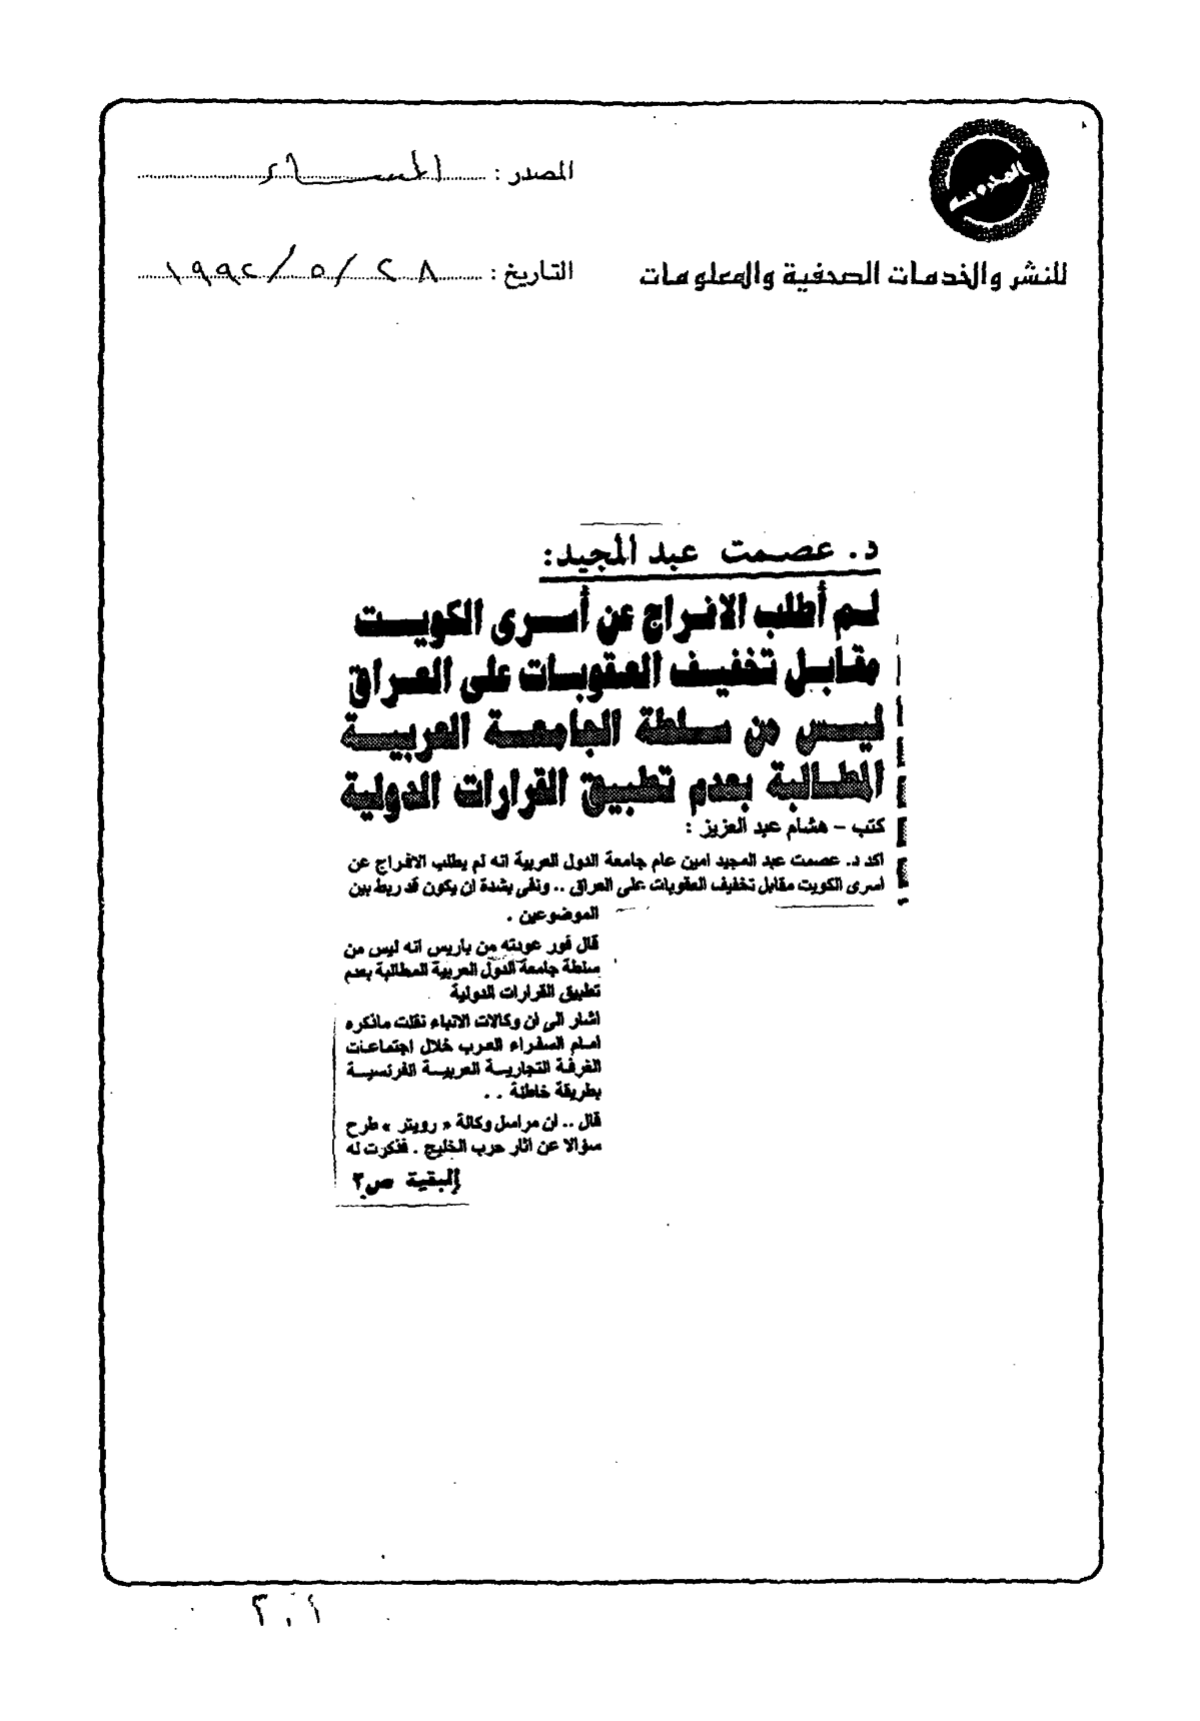 المصدر : المساء
للنشر والخدمات الصحفية والمعلومات
التاريخ : ٢٨ / ٥ / ١٩٩٢
د. عصمت عبد المجيد:
لم أطلب الافراج عن أسرى الكويت
مقابل تخفيف العقوبات على العراق
ليس من سلطة الجامعة العربية
المطالبة بعدم تطبيق القرارات الدولية
كتب - هشام عبد العزيز :
اكد د. عصمت عبد المجيد امين عام جامعة الدول العربية انه لم يطلب الافراج عن
اسرى الكويت مقابل تخفيف العقوبات على العراق .. ونفى بشدة ان يكون قد ربط بين
الموضوعين .
قال فور عودته من باريس انه ليس من
سلطة جامعة الدول العربية المطالبة بعدم
تطبيق القرارات الدولية
اشار الى ان وكالات الانباء نقلت ماذكره
امام السفراء العرب خلال اجتماعات
الغرفة التجارية العربية الفرنسية
بطريقة خاطئة . .
قال .. ان مراسل وكالة « رويتر » طرح
سؤالا عن اثار حرب الخليج . فذكرت له
البقية ص٢